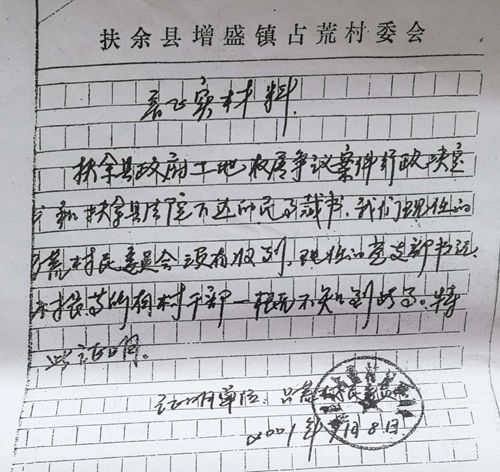 扶余县增盛镇占荒村委会
证实材料
扶余县政府土地权属争议案件行政决定
和扶余县法院下达的民事裁书,我们现任的
荒村民委员会没有收到,现任的党支部书记
村长等所有村干部一概不知到此事。特
此证明。
证明单位:占荒村民委员会
2001年 月8日